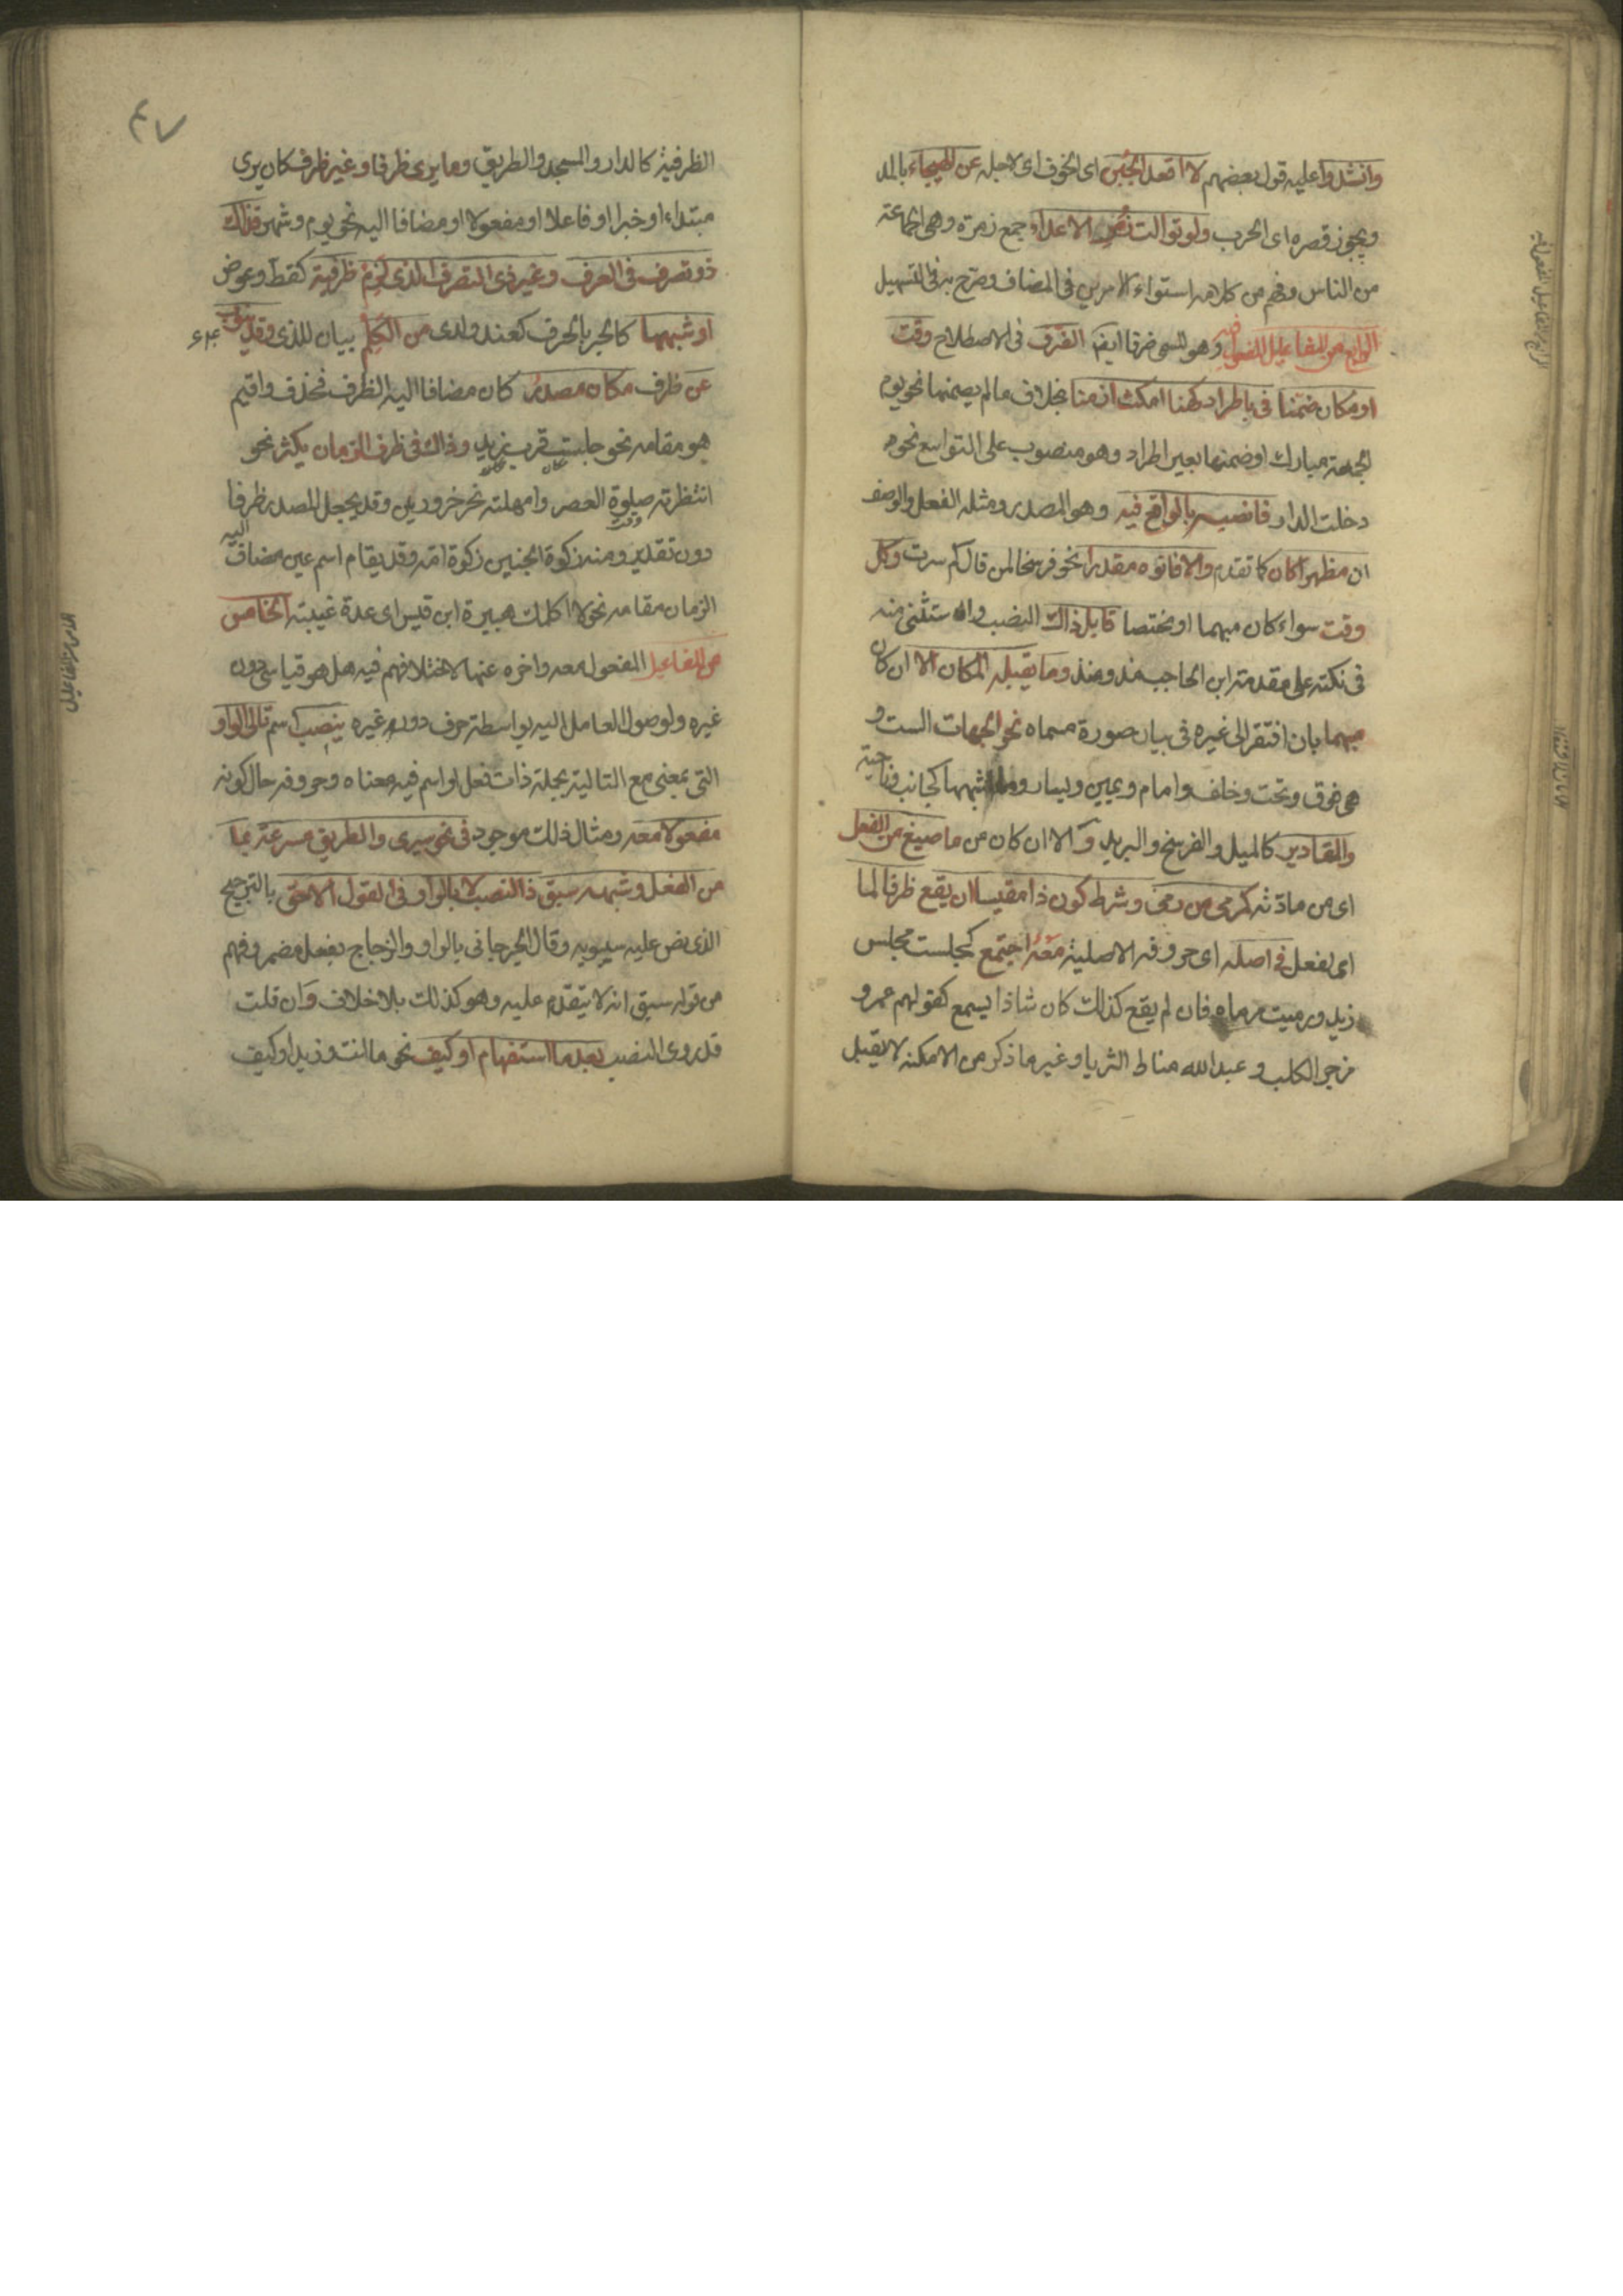 وانشدوا عليه قول بعضهم لا اقعد الجبن اى الخوف اى لاجله عن الهيجاء بالمد
ويجوز قصره اى الحرب ولو توالت زمر الاعداء جمع زمرة وهى الجماعة
من الناس وفهم من كلامه استواء الامرين فى المضاف وصرح به فى التسهيل
الرابع من المفاعيل المفعول فيه وهو المسمى ظرفا ايضا الظرف فى الاصطلاح وقت
او مكان ضمنا فى باطراد كهنا امكث ازمنا بخلاف ما لم يضمنها نحو يوم
الجمعة مبارك او ضمنها بغير اطراد وهو منصوب على التوسع نحو
دخلت الدار فانصبه بالواقع فيه وهو المصدر ومثله الفعل والوصف
ان مظهرا كان كما تقدم والا فانوه مقدرا نحو فرسخا لمن قال كم سرت وكل
وقت سواء كان مبهما او مختصا قابل ذاك النصب واستثنى منه
فى نكته على مقدمة ابن الحاجب مذ ومنذ وما يقبله المكان الا ان كان
مبهما بان افتقر الى غيره فى بيان صورة مسماه نحو الجهات الست و
هى فوق وتحت وخلف وامام ويمين ويسار وما اشبهها كجانب وناحية
والمقادير كالميل والفرسخ والبريد والا ان كان من ما صيغ من الفعل
اى من مادته كمرمى من رمى وشرط كون ذا مقيسا ان يقع ظرفا لما
اى لفعل فى اصله اى حروفه الاصلية معه اجتمع كجلست مجلس
زيد ورميت مرماه فان لم يقع كذلك كان شاذا يسمع كقولهم عمرو
مزجر الكلب وعبد الله مناط الثريا وغير ما ذكر من الامكنة لا يقبل
٤٧
الظرفية كالدار والمسجد والطريق وما يرى ظرفا وغير ظرف كان يرى
مبتداء او خبرا او فاعلا او مفعولا او مضافا اليه نحو يوم وشهر فذاك
ذو تصرف فى العرف وغير ذى التصرف الذى لزم ظرفية كقط وعوض
او شبهها كالجر بالحرف كعند ولدى من الكلم بيان للذى وقد ينوب
عن ظرف مكان مصدر كان مضافا اليه الظرف فحذف واقيم
هو مقامه نحو جلست قرب زيد وذاك فى ظرف الزمان يكثر نحو
انتظرته صلوة العصر وامهلته نحر جزورين وقد يجعل المصدر ظرفا
دون تقدير ومنه ذكوة الجنين ذكوة امه وقد يقام اسم عين مضاف اليه
الزمان مقامه نحو لا اكلمك هبيرة ابن قيس اى مدة غيبته الخامس
من المفاعيل المفعول معه واخره عنها لاختلافهم فيه هل هو قياسى دون
غيره ولوصول العامل اليه بواسطة حرف دون غيره ينصب اسم تالى الواو
التى بمعنى مع التالية بجملة ذات فعل او اسم فيه معناه وحروفه حال كونه
مفعولا معه ومثال ذلك موجود فى نحو سيرى والطريق مسرعة بما
من الفعل وشبهه سبق ذا النصب لا بالواو فى القول الاحق بالترجيح
الذى نص عليه سيبويه وقال الجرجانى بالواو والزجاج بفعل مضمر وفهم
من قوله سبق انه لا يتقدم عليه وهو كذلك بلا خلاف وان قلت
قد روى النصب بعد ما استفهام او كيف نحو ما انت وزيدا وكيف
الخامس من المفاعيل